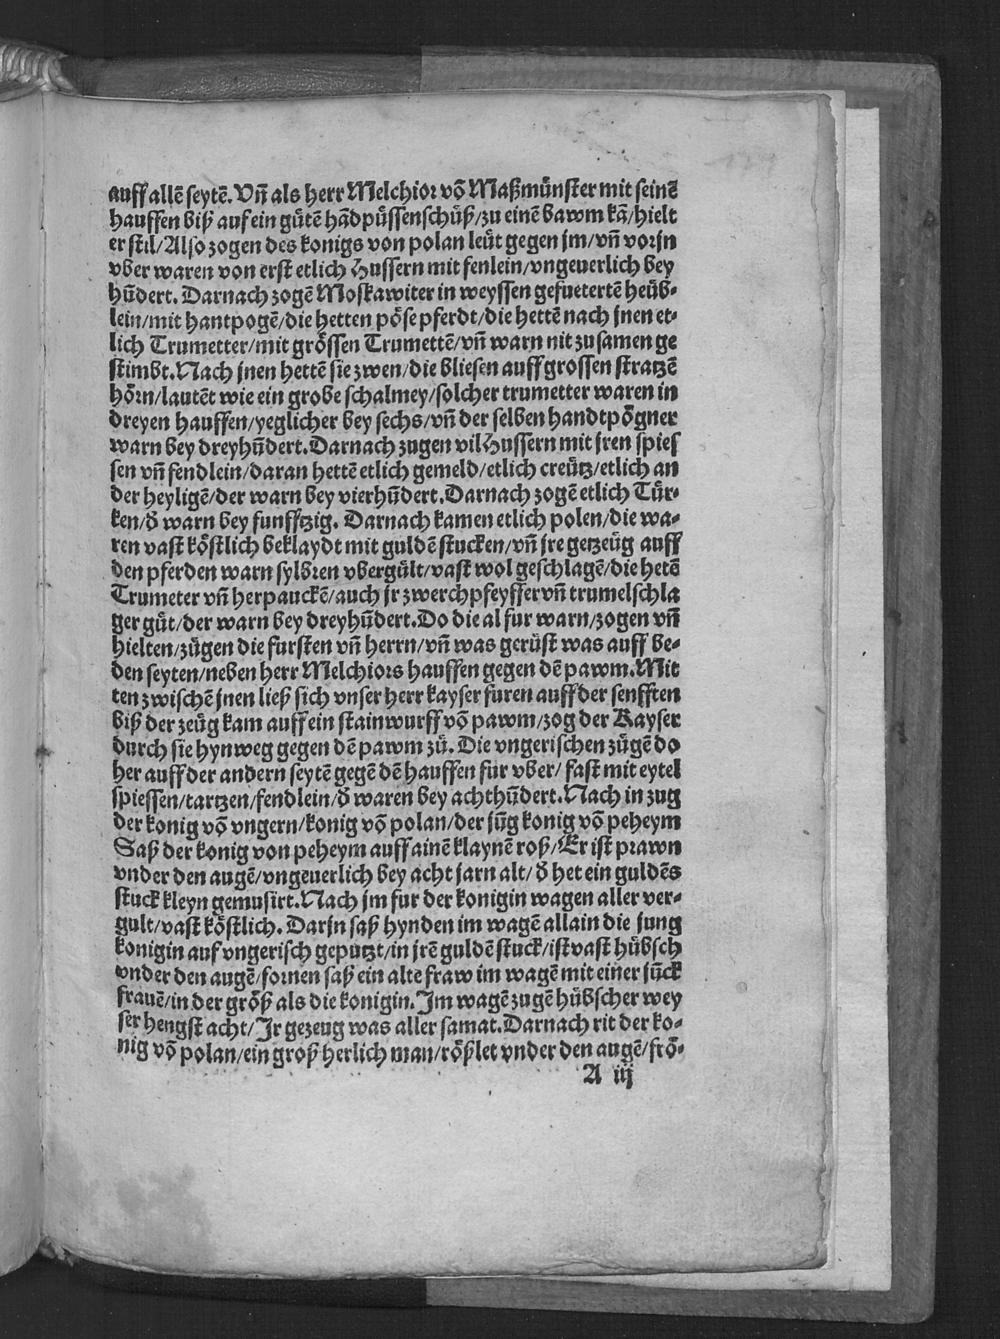 auff allē seytē. Vñ als herr Melchior võ Maßmünster mit seinē
hauffen biß auf ein gůtē hādpüssenschůß/zu einē bawm kā/hielt
er stil/Also zogen des konigs von polan leüt gegen jm/vñ vorjn
vber waren von erst etlich Hussern mit fenlein/vngeuerlich bey
hūdert. Darnach zogē Moskawiter in weyssen gefuetertē heüb-
lein/mit hantpogē/die hetten pöse pferdt/die hettē nach jnen et-
lich Trumetter/mit grössen Trumettē/vñ warn nit zusamen ge
stimbt. Nach jnen hettē sie zwen/die bliesen auff grossen stratzē
hörn/lautēt wie ein grobe schalmey/solcher trumetter waren in
dreyen hauffen/yeglicher bey sechs/vñ der selben handtpögner
warn bey dreyhūdert. Darnach zugen vil Hussern mit jren spies
sen vñ fendlein/daran hettē etlich gemeld/etlich creütz/etlich an
der heyligē/der warn bey vierhūdert. Darnach zogē etlich Tür-
ken/ð warn bey funfftzig. Darnach kamen etlich polen/die wa-
ren vast köstlich beklaydt mit guldē stucken/vñ jre getzeüg auff
den pferden warn sylbren vbergült/vast wol geschlagē/die hetē
Trumeter vñ herpauckē/auch jr zwerchpfeyffer vñ trumelschla
ger gůt/der warn bey dreyhūdert. Do die al fur warn/zogen vñ
hielten/zůgen die fursten vñ herrn/vñ was gerüst was auff be-
den seyten/neben herr Melchiors hauffen gegen dē pawm. Mit
ten zwischē jnen ließ sich vnser herr kayser furen auff der senfften
biß der zeüg kam auff ein stainwurff võ pawm/zog der Kayser
durch sie hynweg gegen dē pawm zů. Die vngerischen zůgē do
her auff der andern seytē gegē dē hauffen fur vber/ fast mit eytel
spiessen/tartzen/fendlein/ð waren bey achthūdert. Nach in zug
der konig võ vngern/konig võ polan/der jūg konig võ peheym
Saß der konig von peheym auff ainē klaynē roß/Er ist prawn
vnder den augē/vngeuerlich bey acht jarn alt/ ð het ein guldēs
stuck kleyn gemusirt. Nach jm fur der konigin wagen aller ver-
gult/vast köstlich. Darjn saß hynden im wagē allain die jung
konigin auf vngerisch geputzt/in jrē guldē stuck/ist vast hübsch
vnder den augē/fornen saß ein alte fraw im wagē mit einer jūck
frauē/in der größ als die konigin. Im wagē zugē hübscher wey
ser hengst acht/Ir gezeug was aller samat. Darnach rit der ko-
nig võ polan/ein groß herlich man/rößlet vnder den augē/frö-
A iij